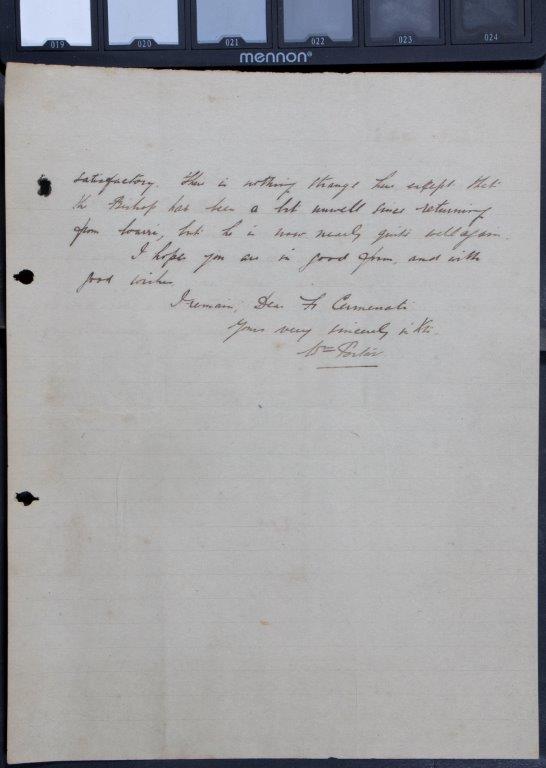 019 020 021 022 023 024
mennon®
satisfactory. There is nothing strange here except that
the Bishop has been a bit unwell since returning
from Lowerri, but he is now nearly quite well again.
I hope you are in good form, and with
good wishes,
I remain, Dear Fr Cermenati
Yours very sincerely in Xto.
Wm Porter